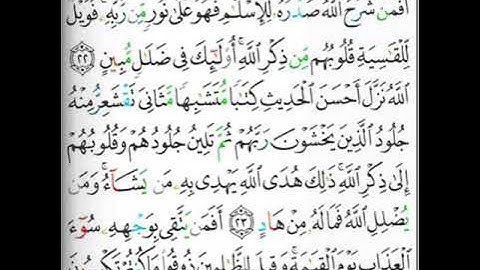 أَفَمَن شَرَحَ ٱللَّهُ صَدْرَهُۥ لِلْإِسْلَٰمِ فَهُوَ عَلَىٰ نُورٍ مِّن رَّبِّهِۦ ۚ فَوَيْلٌ
لِّلْقَٰسِيَةِ قُلُوبُهُم مِّن ذِكْرِ ٱللَّهِ ۚ أُو۟لَٰٓئِكَ فِى ضَلَٰلٍ مُّبِينٍ ٢٢
ٱللَّهُ نَزَّلَ أَحْسَنَ ٱلْحَدِيثِ كِتَٰبًا مُّتَشَٰبِهًا مَّثَانِىَ تَقْشَعِرُّ مِنْهُ
جُلُودُ ٱلَّذِينَ يَخْشَوْنَ رَبَّهُمْ ثُمَّ تَلِينُ جُلُودُهُمْ وَقُلُوبُهُمْ
إِلَىٰ ذِكْرِ ٱللَّهِ ۚ ذَٰلِكَ هُدَى ٱللَّهِ يَهْدِى بِهِۦ مَن يَشَآءُ ۚ وَمَن
يُضْلِلِ ٱللَّهُ فَمَا لَهُۥ مِنْ هَادٍ ٢٣ أَفَمَن يَتَّقِى بِوَجْهِهِۦ سُوٓءَ
ٱلْعَذَابِ يَوْمَ ٱلْقِيَٰمَةِ ۚ وَقِيلَ لِلظَّٰلِمِينَ ذُوقُوا۟ مَا كُنتُمْ تَكْسِبُونَ